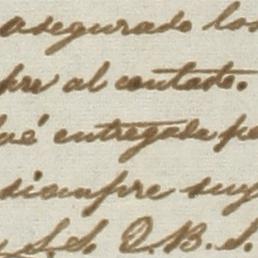 asegurado los
pre al contado.
ué entregada pe
siempre suy
y S.S. Q.B.S.